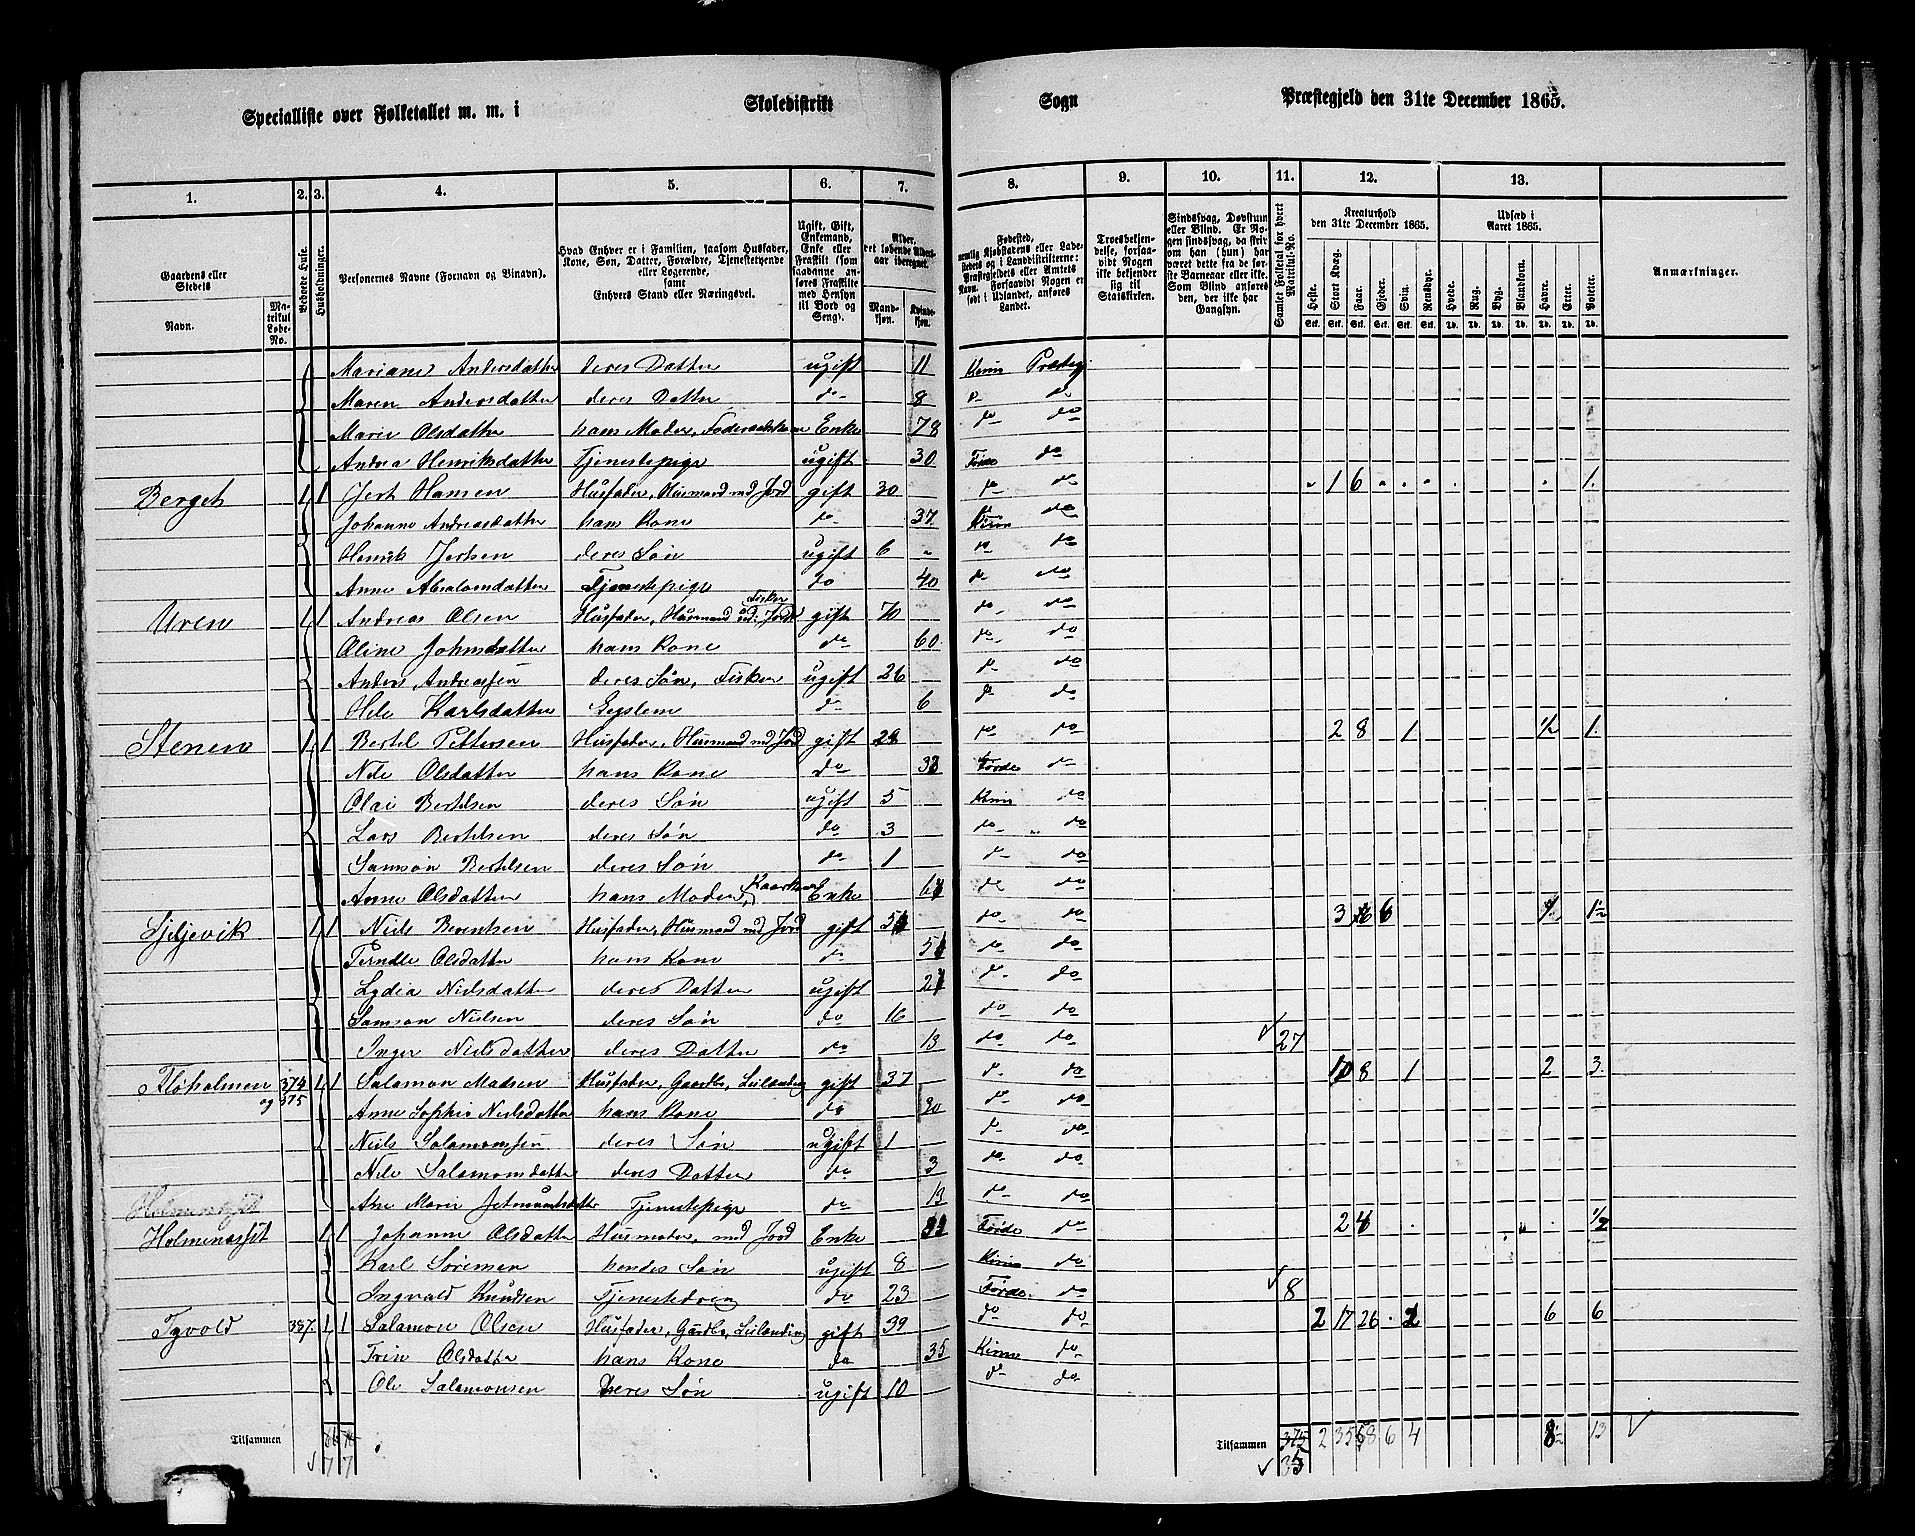 Specialliste over Folketallet m. m. i Skoledistrikt Sogn Præstegjeld den 31te December 1865.
1. 2. 3. 4. 5. 6. 7. 8. 9. 10. 11. 12. 13.
Gaardens eller Stedets Navn.
Matrikul Løbe-No.
Beboede Huse.
Husholdninger.
Personernes Navne (Fornavn og Tilnavn).
Hvad Enhver er i Familien, saasom Husfader, Kone, Søn, Datter, Forældre, Tjenestetyende eller Logerende, samt Enhvers Stand eller Næringsvei.
Ugift, Gift, Enkemand, Enke eller Fraskilt (som saadanne anføres Fraskilte med Hensyn til Bord og Seng).
Alder, det løbende Alders-aar iberegnet.
Mandkjøn. Kvindekjøn.
Fødested, nemlig Kjøbstadens eller Ladestedets og i Landdistrikterne: Præstegjeldets eller Amtets Navn. Forsaavidt Nogen er født i Udlandet, anføres Landet.
Troesbekjendelse, forsaavidt Nogen ikke bekjender sig til Statskirken.
Sindssvag, Døvstum eller Blind. Er Nogen sindssvag, da skrives om han (hun) har været dette fra de første Barneaar eller ikke. Som Blind anføres den, der ikke har Gangsyn.
Samlet Folketal for hvert Matrikul-No.
Kreaturhold den 31te December 1865.
Heste. Stort Kvæg. Faar. Gjeder. Svin. Rensdyr.
Udsæd i Aaret 1865.
Hvede. Rug. Byg. Blandkorn. Havre. Erter. Poteter.
Anmærkninger.
Mariane Andersdatter deres Datter ugift 11 Kinn Præsteg
Maren Andersdatter deres Datter do 8 do do
Marie Olsdatter hans Moder, Føderaadskone Enke 78 do do
Andrea Henriksdatter Tjenestepige ugift 30 Førde do
Berget 1 1 Jert Hansen Husfader, Husmand med Jord gift 30 do do 1 6 1
Johanne Andreasdatter hans Kone do 37 Kinn do
Henrik Jertsen deres Søn ugift 6 do do
Anne Absalomdatter Tjenestepige do 40 do do
Uren 1 1 Andreas Olsen Husfader, Husmand ud: Jord Fisker gift 70 do do
Oline Johnsdatter hans Kone do 60 do do
Anders Andreassen deres Søn, Fisker ugift 26 do do
Nele Karlsdatter Legslem do 6 do do
Stenen 1 1 Bertel Pettersen Husfader, Husmand med Jord gift 28 do do 2 8 1 1/2 1
Nele Olsdatter hans Kone do 38 Førde do
Olai Bertelsen deres Søn ugift 5 Kinn do
Lars Bertelsen deres Søn do 3 do do
Samson Bertelsen deres Søn do 1 do do
Anne Olsdatter hans Moder, Enke do do
1 1 Niels Berentsen Husfader, Husmand med Jord gift do do 3 6
Pernille Olsdatter hans Kone do do do
Lydia Nielsdatter deres Datter ugift do do
Samson Nielsen deres Søn do 16 do do
Inger Nielsdatter deres Datter do 13 do do 27
Floholmen 374 og 375 1 1 Salamon Madsen Husfader, Gaardbr, Leilænding gift 37 do do 10 8 1 2 3
Anne Sophie Nielsdatter hans Kone do 30 do do
Niels Salamonsen deres Søn ugift 1 do do
Nele Salamonsdatter deres Datter do 3 do do
Ane Marie Tjenestepige do 13 do do
Holmenasset 1 1 Johanne Olsdatter Husmoder, med Jord Enke Førde do 2 4 1/2
Karl Sørensen hendes Søn ugift 8 Kinn do
Ingvald Knudsen Tjenestedreng do 23 Førde do 8
Tyvold 387. 1 1 Salamon Olsen Husfader, Gardbr, Leilænding gift 39 do do 2 17 26 2 6 6
Trin Olsdatter hans Kone do 35 Kinn do
Ole Salamonsen Deres Søn ugift 10 do do
Tilsammen 7 7 Tilsammen 375 35 2 35 58 6 4 8 1/2 13